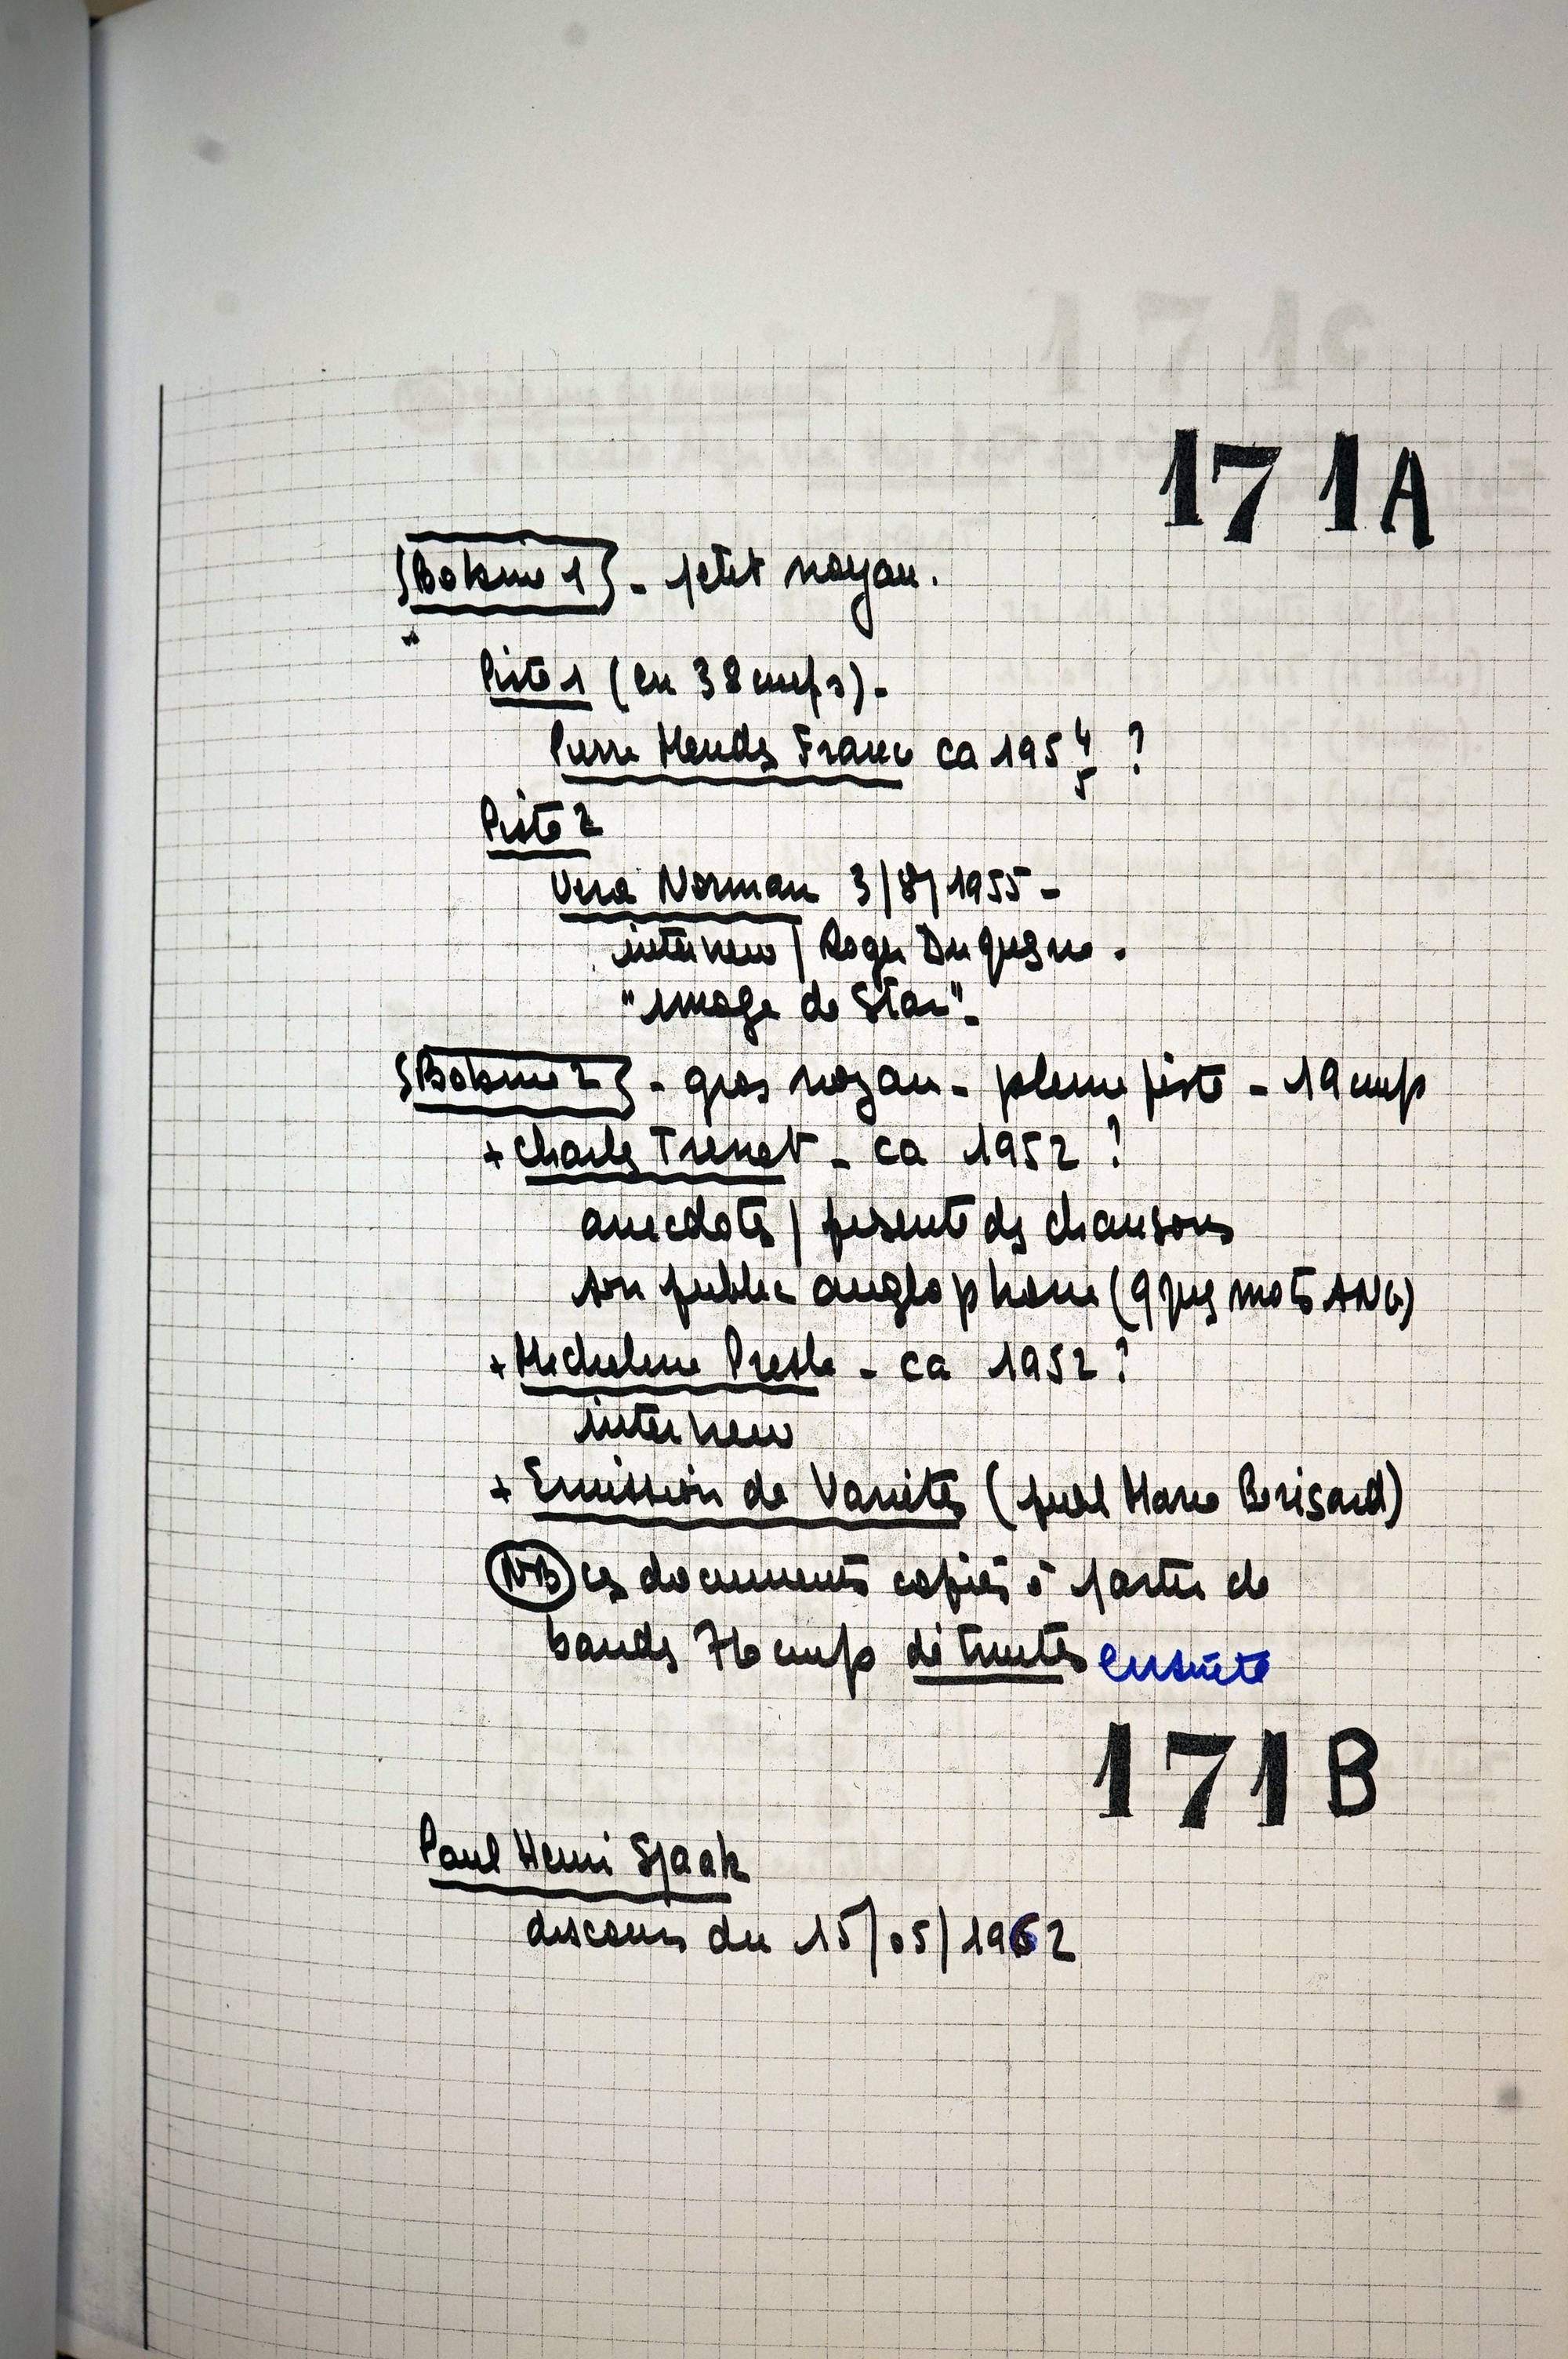 171A
Bobine 1 - petit noyau.
Piste 1 (en 38 cmps).
Pierre Mendes France ca 195 4/5 ?
Piste 2
Vera Norman 3/8/1955 -
interview / Roger Duquesne.
"image de Star".
Bobine 2 - gros noyau - pleine piste - 19 cmps
+ Charles Trenet - ca 1952 ?
anecdotes / présente des chansons
son public anglophone (qques mots ANG)
+ Micheline Presle - ca 1952 ?
interview
+ Emission de Variétés (publ Marie Brizard)
NB ces documents copiés à partir de
bandes 76 cmps détruites ensuite
171B
Paul Henri Spaak
discours du 15/05/1962